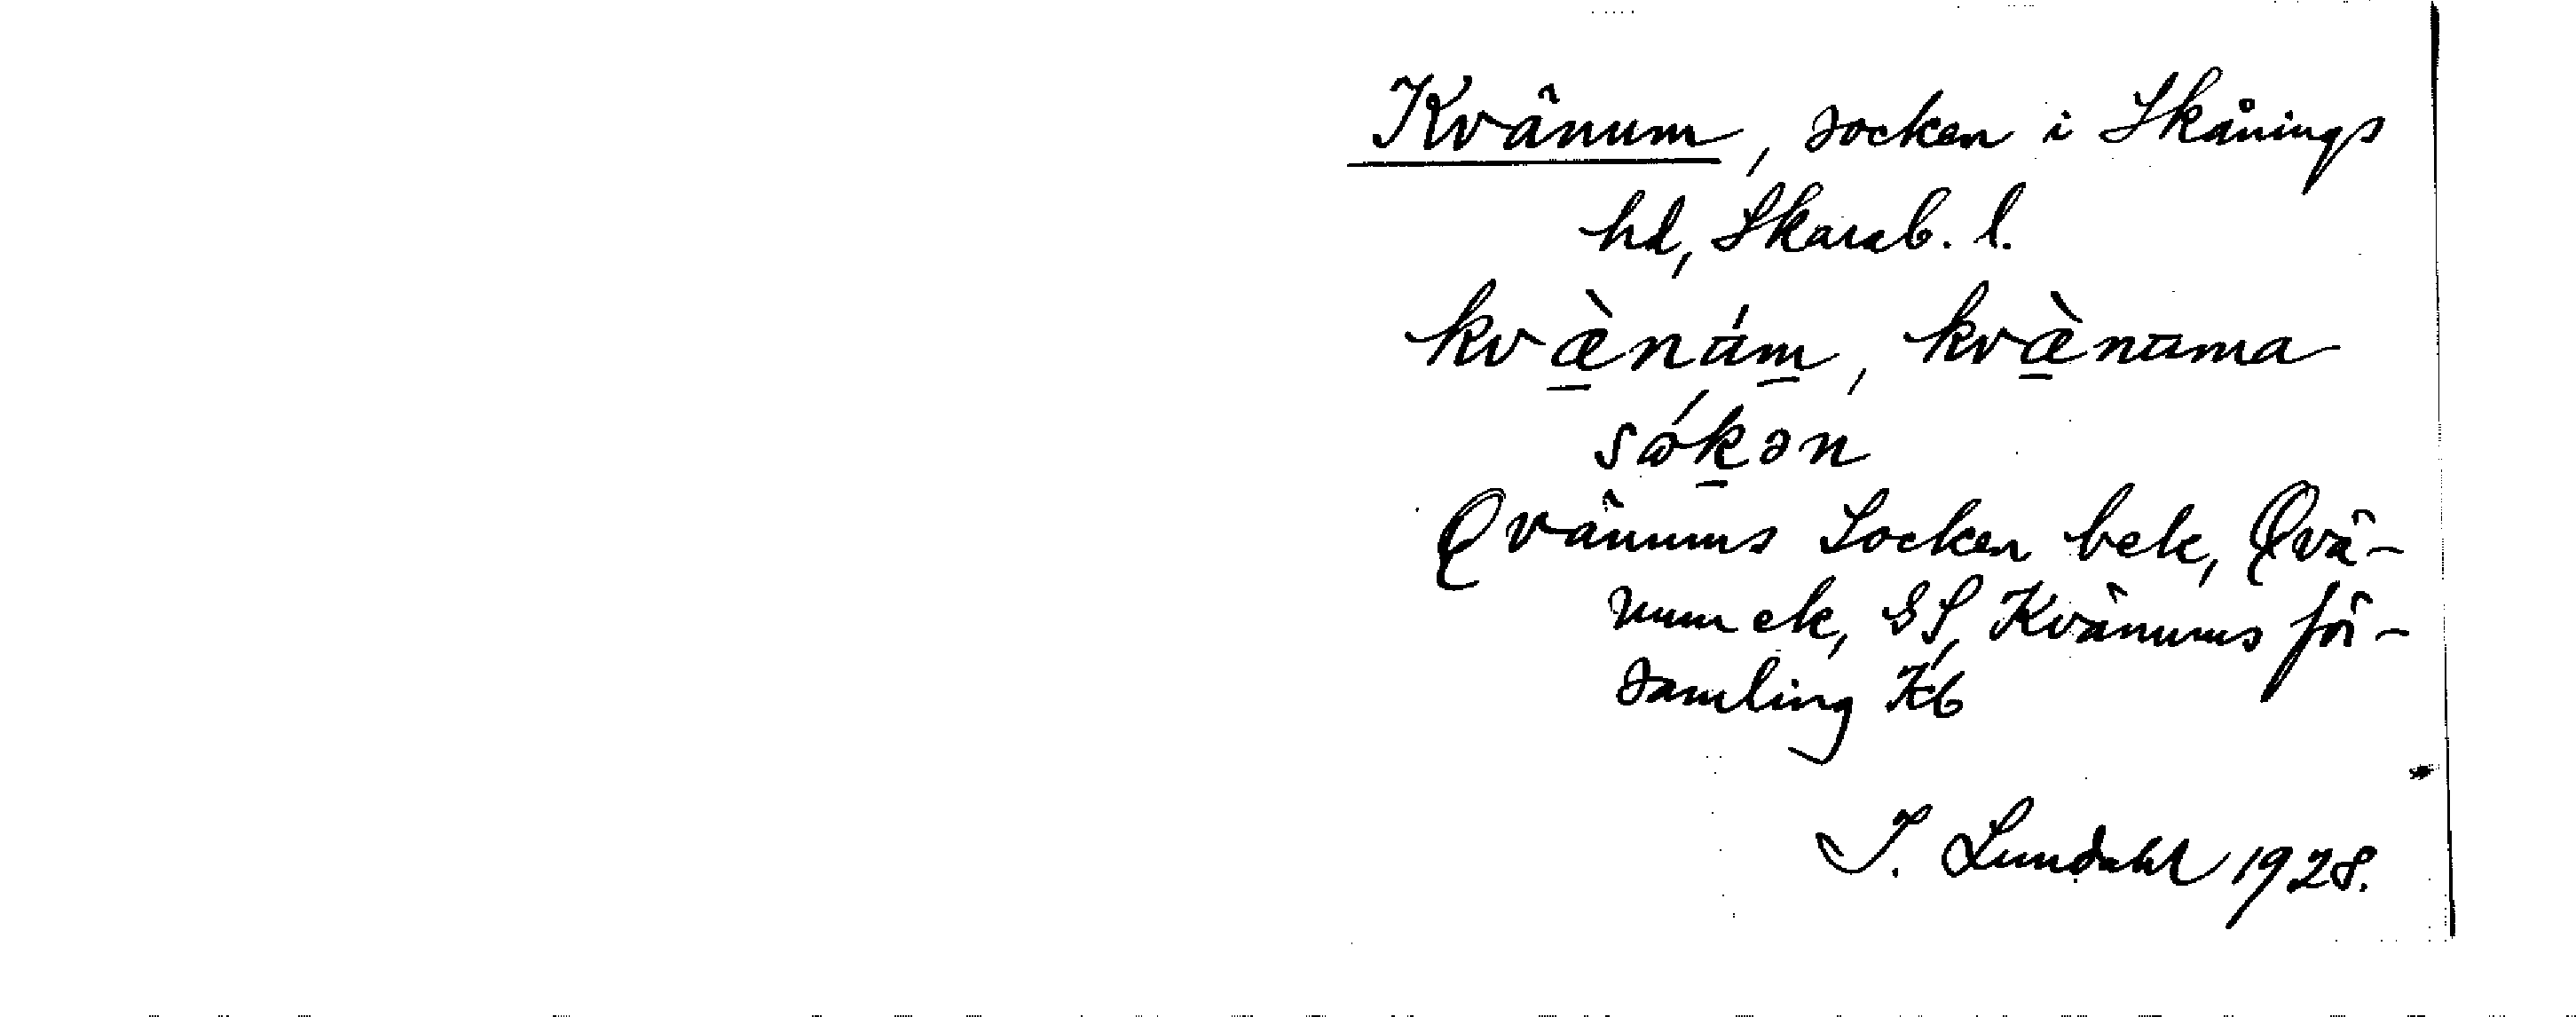 Kvänum, socken i Skånings
hd, Skarab. l.
kvæ̀núm, kvæ̀numa
sókən
Qvänums Socken bek, Qvä-
num ek, GS, Kvänums för-
samling Kb
I. Lundahl 1928.